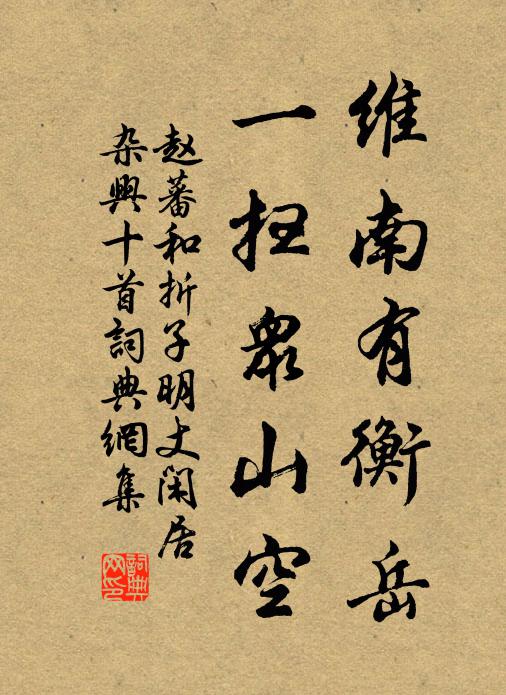 维南有衡岳
一扫眾山空
赵蕃和折子明丈闲居
杂興十首詞典網集
詞典
网印